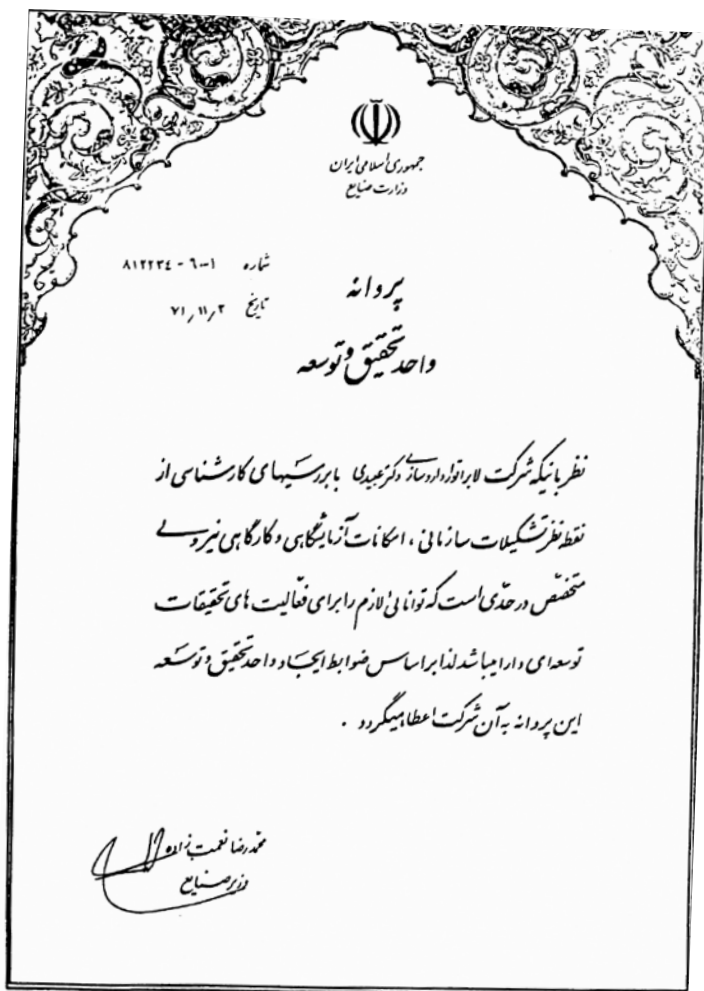 جمهوری اسلامی ایران
وزارت صنایع
شماره ۶۰۰۱ - ۸۱۲۲۳۴
تاریخ ۷۱٫۱۱٫۳
پروانه
واحد تحقیق و توسعه
نظر باینکه شرکت لابراتوار داروسازی دکتر عبیدی با بررسیهای کارشناسی از
نقطه نظر تشکیلات سازمانی ، امکانات آزمایشگاهی و کارگاهی نیروی
متخصص در حدی است که توانائی لازم را برای فعالیت های تحقیقات
توسعه ای دارا میباشد لذا بر اساس ضوابط ایجاد واحد تحقیق و توسعه
این پروانه به آن شرکت اعطا میگردد .
محمدرضا نعمت زاده
وزیر صنایع